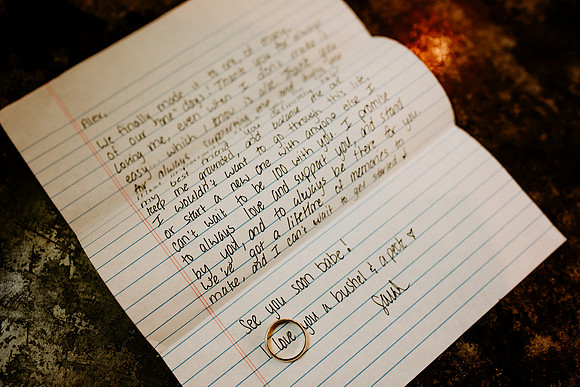 Alex,
We finally made it to one of many
of our "one" days! Thank you for always
loving me, even when I don't make it
easy, which I know is a lot. Thank you
for always supporting me and being
my best friend. You definitely
keep me grounded, and because me and
I wouldn't want to go through this life
or start a new one with anyone else. I
can't wait to be 100 with you. I promise
to always love and support you, and stand
by you, and to always be there for you.
We've got a lifetime of memories to
make, and I can't wait to get started!
See you soon babe!
I love you a bushel & a peck ♥
Sarah